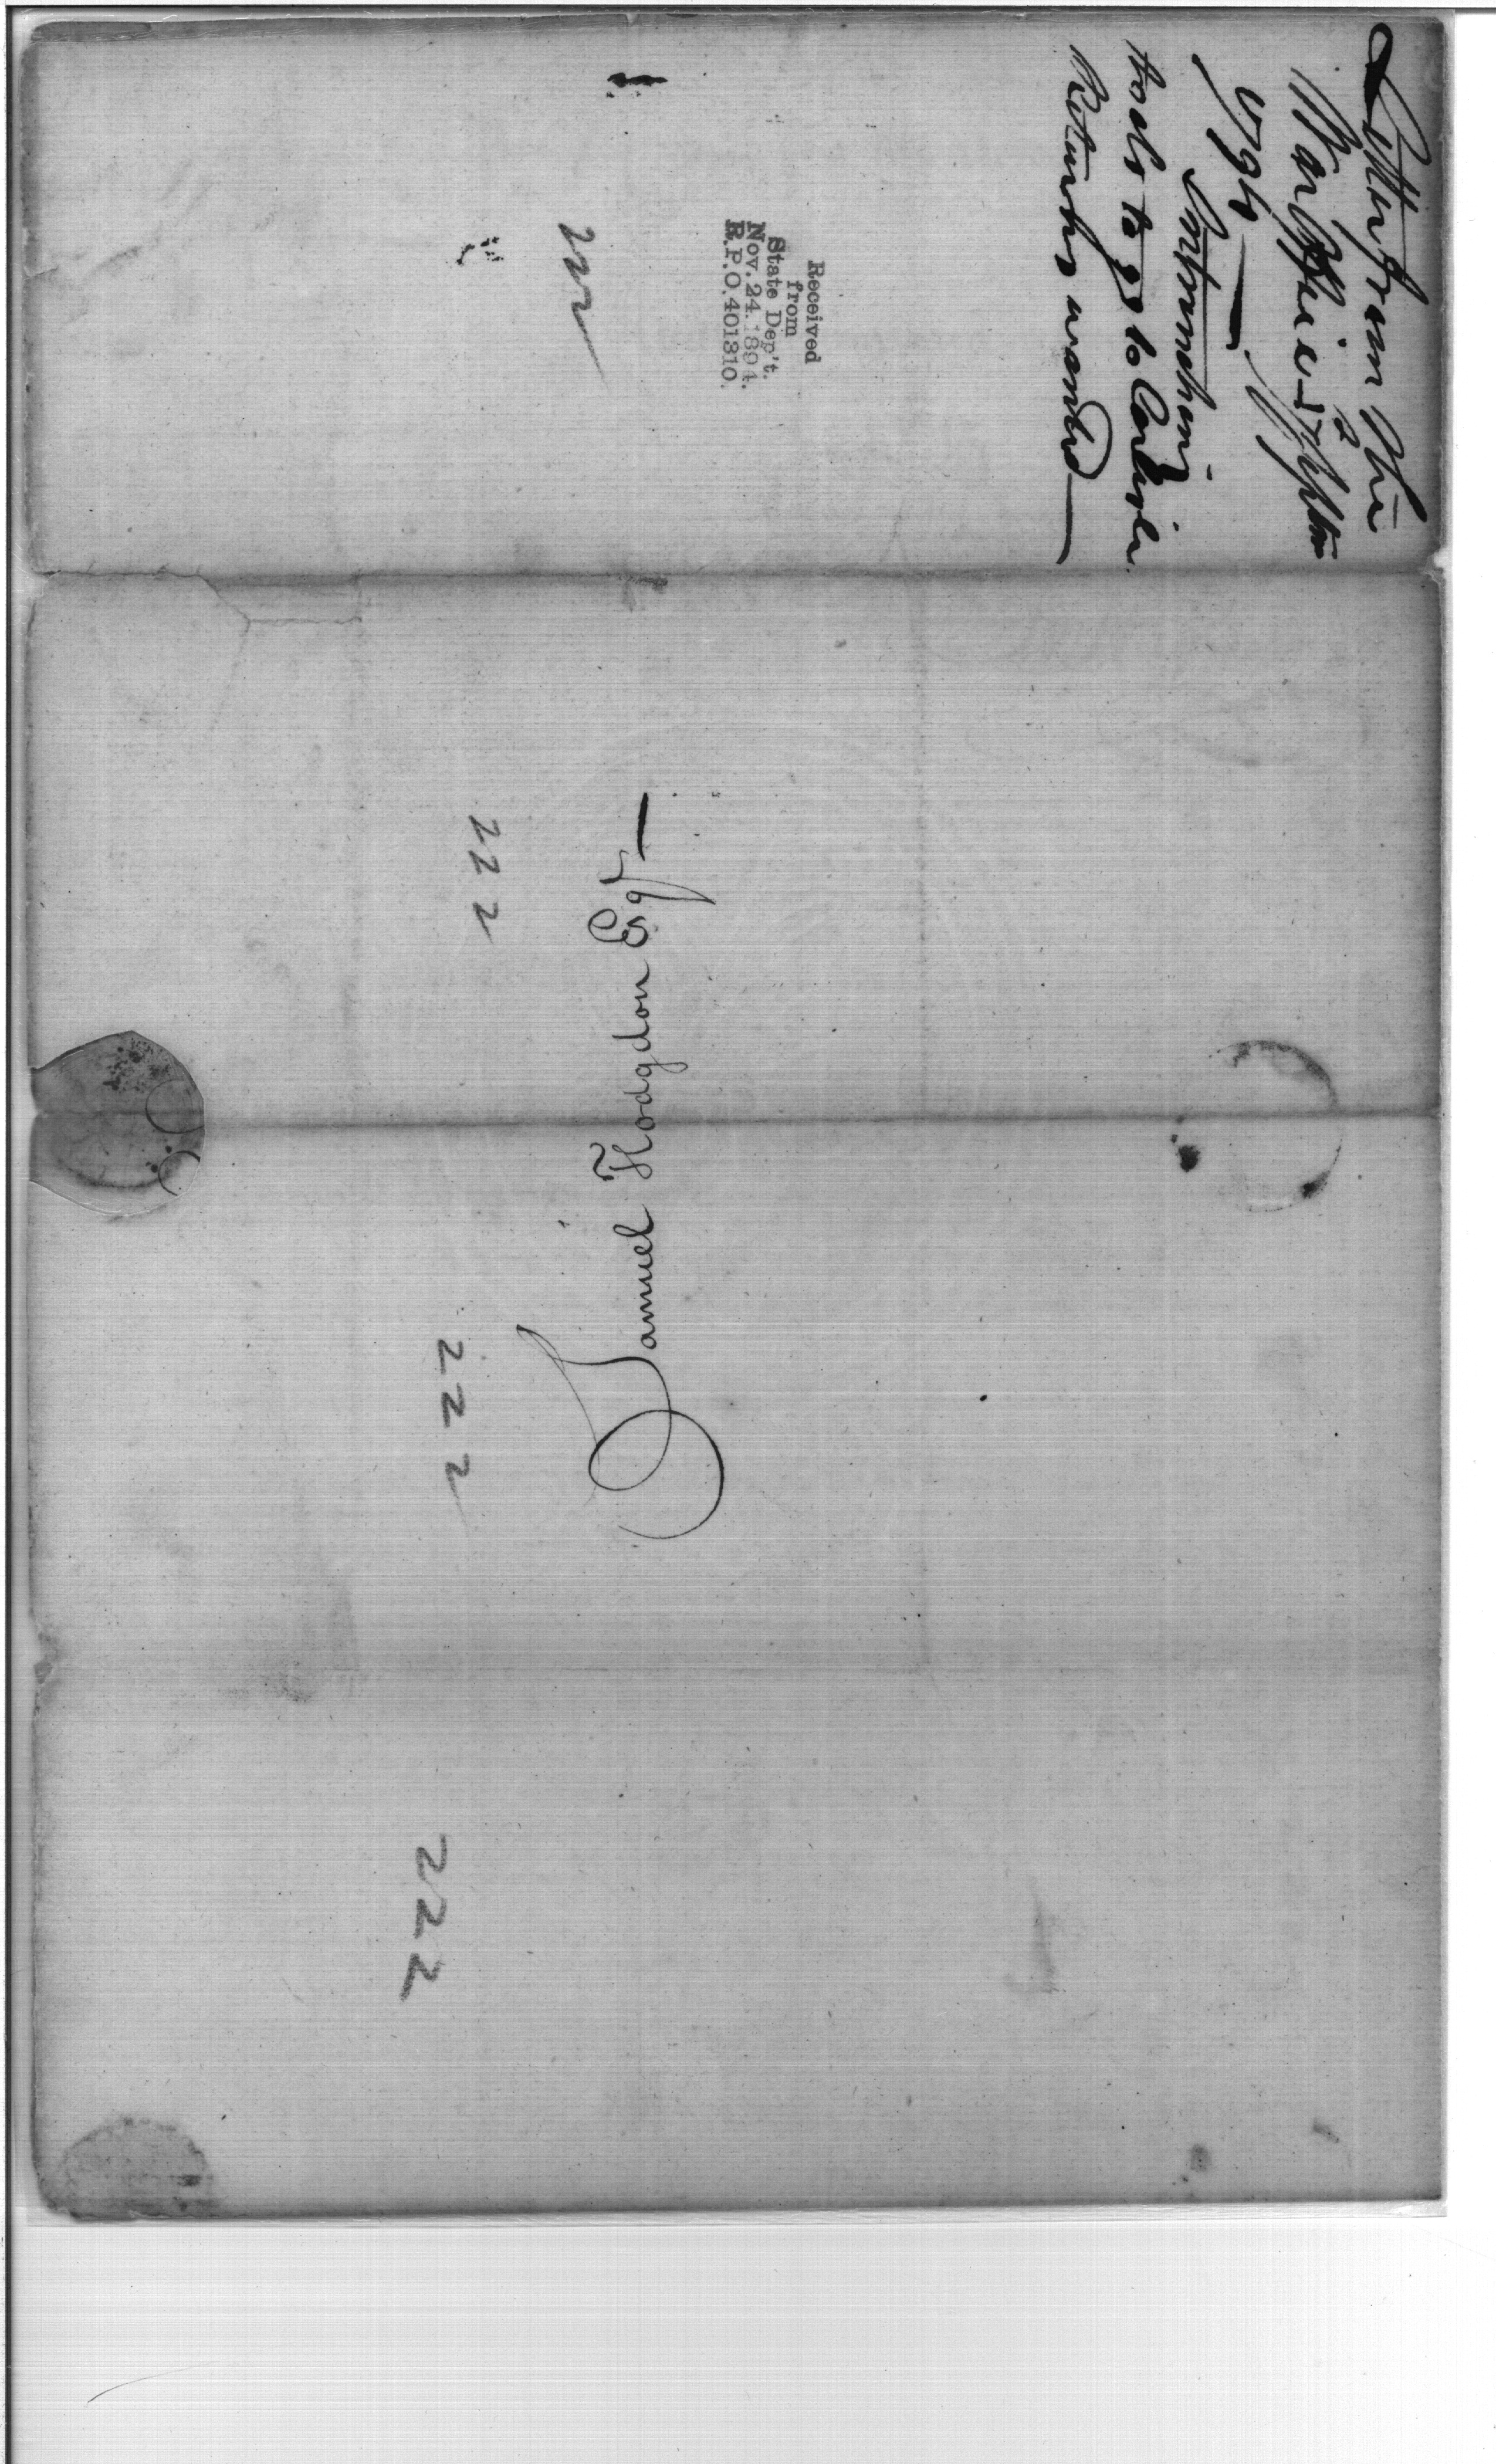 Letter from the
War Office 17 Septem
1794 —
Intrenching
tools to go to Carlisle
Returns wanted —
Received
from
State Dep't.
Nov. 24. 1894.
R.P.O. 401310.
222
Samuel Hodgdon Esqr —
222
222
222